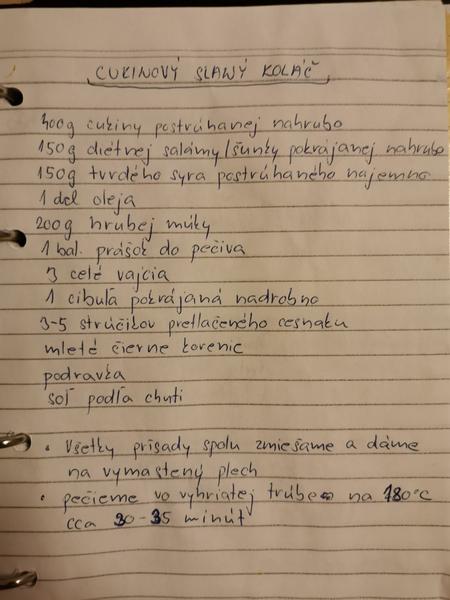 CUKINOVÝ SLANÝ KOLÁČ
400g cukiny postrúhanej nahrubo
150g diétnej salámy/šunky pokrájanej nahrubo
150g tvrdého syra postrúhaného najemno
1 dcl oleja
200g hrubej múky
1 bal. prášok do pečiva
3 celé vajcia
1 cibuľa pokrájaná nadrobno
3-5 strúčikov pretlačeného cesnaku
mleté čierne korenie
podravka
soľ podľa chuti
• Všetky prísady spolu zmiešame a dáme
na vymastený plech
• pečieme vo vyhriatej trúbe na 180°C
cca 30-35 minút